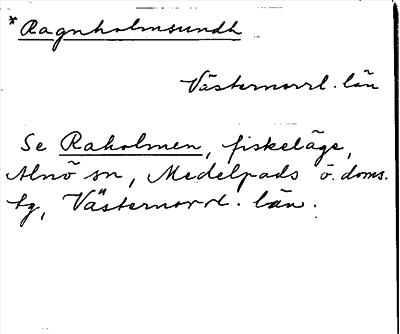 *Ragnholmsundh
Västernorrl. län
Se Raholmen, fiskeläge,
Alnö sn, Medelpads ö. doms.
tg, Västernorrl. län.